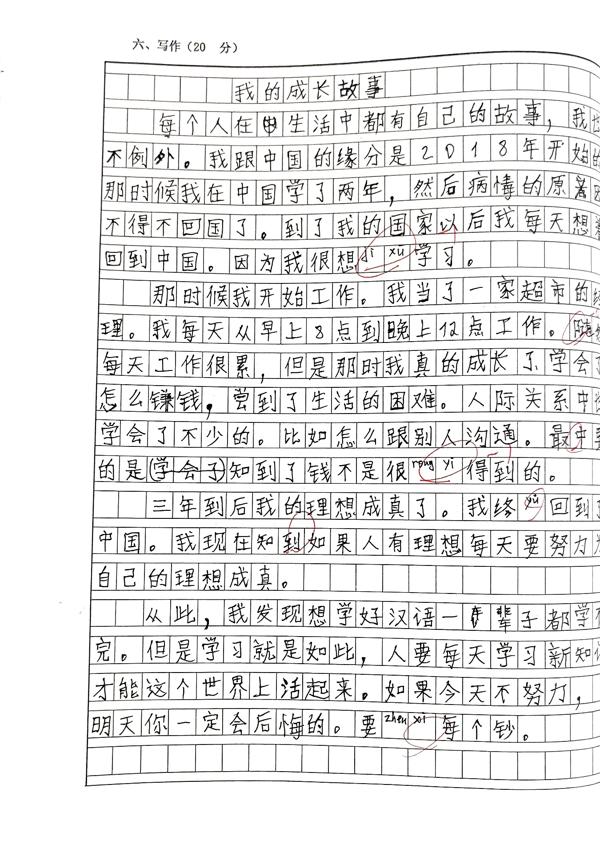 六、写作（20 分）
我的成长故事
每个人在生活中都有自己的故事，我也
不例外。我跟中国的缘分是2018年开始的
那时候我在中国学了两年，然后病情的原因
不得不回国了。到了我的国家以后我每天想着
回到中国。因为我很想jì xù学习。
那时候我开始工作。我当了一家超市的经
理。我每天从早上8点到晚上12点工作。随然
每天工作很累，但是那时我真的成长了，学会了
怎么赚钱，尝到了生活的困难。人际关系中
学会了不少的。比如怎么跟别人沟通。最
的是(学会了)知到了钱不是很rong yi得到的。
三年到后我的理想成真了。我终yú回到了
中国。我现在知到如果人有理想每天要努力为
自己的理想成真。
从此，我发现想学好汉语一辈子都学不
完。但是学习就是如此，人要每天学习新知识
才能这个世界上活起来。如果今天不努力，
明天你一定会后悔的。要zhen xi每个钞。